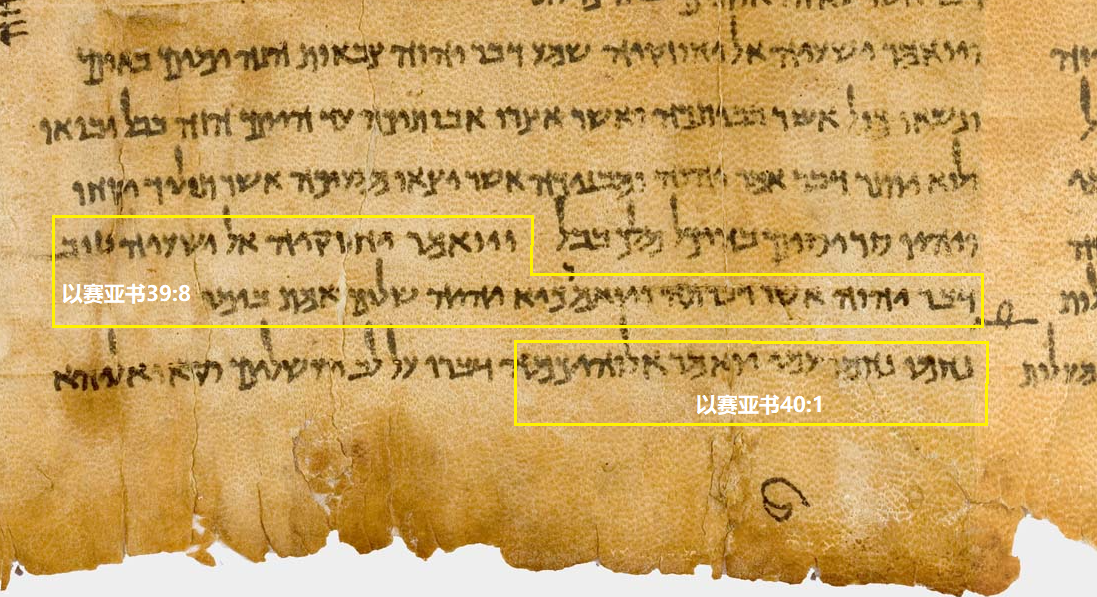 ויואמר ישעיה אל יחוזקיה שמע דבר יהוה צבאות הנה ימים באים
ונשאו כול אשר בביתכה ואשר אצרו אבותיכה עד היום הזה בבל יבואו
ולא יותר דבר אמר יהוה אשר יצאו אשר תוליד יקחו
והיו סריסים בהיכל מלך בבל ויואמר יחזקיה אל ישעיה טוב
דבר יהוה אשר דברתה ויואמר כיא יהיה שלום ואמת בימי
以赛亚书39:8
נחמו נחמו עמי יואמר אלוהיכמה דברו על לב ירושלים וקראו אליהא
以赛亚书40:1